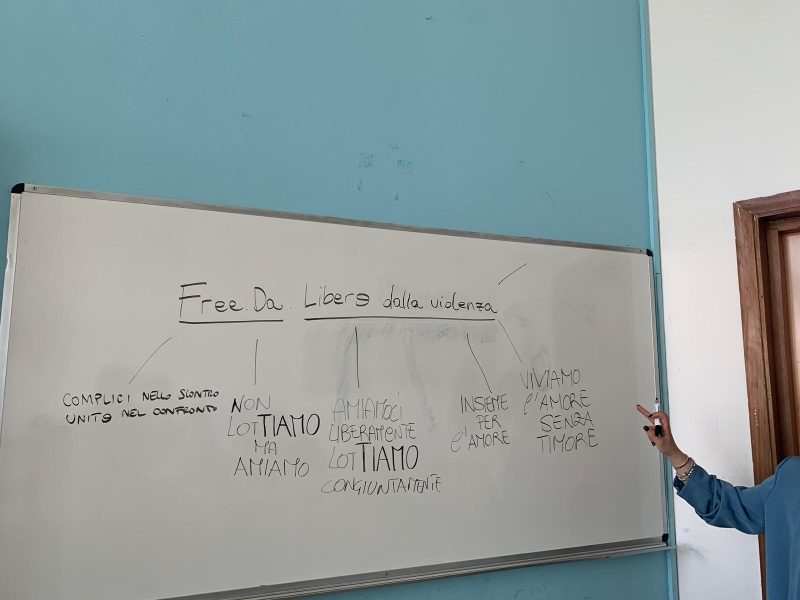 Free. Da. Liberə dalla violenza
COMPLICI NELLO SCONTRO
UNITə NEL CONFRONTO
NON
LOTTIAMO
MA
AMIAMO
AMIAMOCI
LIBERAMENTE
LOTTIAMO
CONGIUNTAMENTE
INSIEME
PER
L'AMORE
VIVIAMO
L'AMORE
SENZA
TIMORE